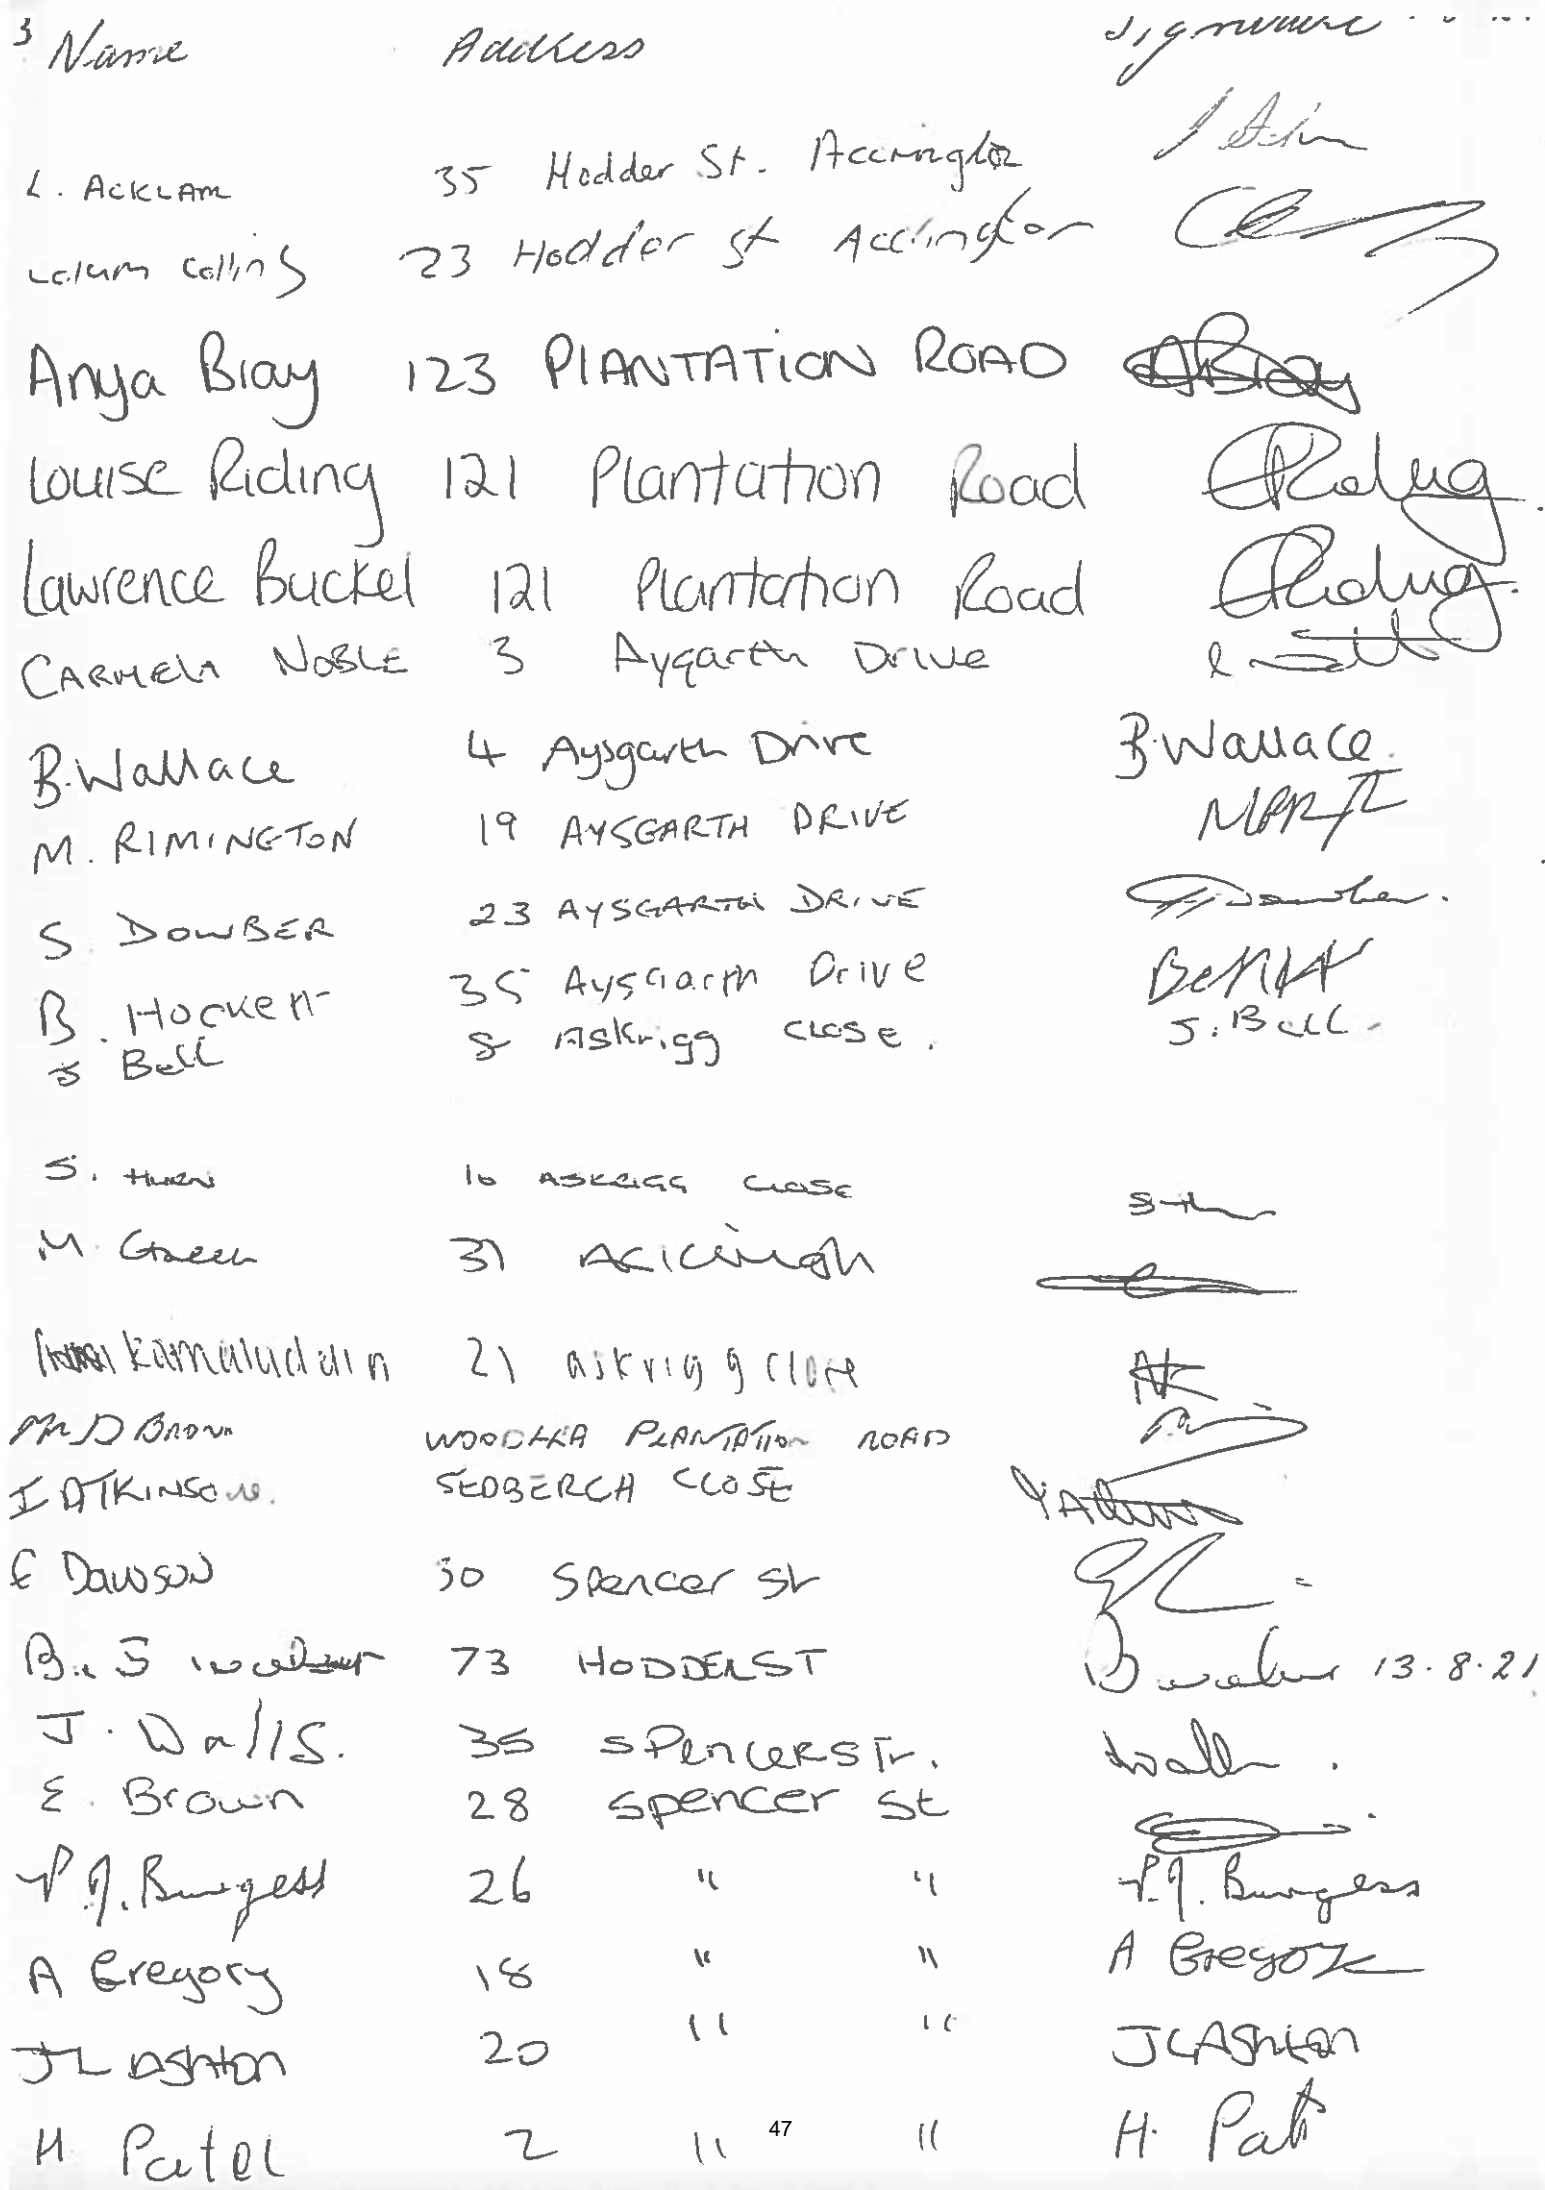 3 Name Address Signature
L. ACKLAM 35 Hodder St. Accrington
Calum Collins 23 Hodder St Accrington
Anya Bray 123 PLANTATION ROAD ABray
Louise Riding 121 Plantation Road Riding
Lawrence Buckel 121 Plantation Road Riding
CARMELA NOBLE 3 Aygarth Drive
B. Wallace 4 Aysgarth Drive B. Wallace.
M. RIMINGTON 19 AYSGARTH DRIVE
S. DOWBER 23 AYSGARTH DRIVE
B. Hockett 35 Aysgarth Drive
J Bell 8 Askrigg close. J. Bell.
S. 10 ASKRIGG CLOSE
M. Green 31
Kamaluddin 21 askrigg close AK
Mr D BROWN PLANTATION ROAD
I ATKINSON. SEDBERGH CLOSE
E Dawson 30 Spencer St
B. S 73 HODDER ST 13.8.21
J. Walls. 35 SPENCER STr.
E. Brown 28 Spencer St
P.J. Burgess 26 " " P.J. Burgess
A Gregory 18 " " A Gregory
J L Ashton 20 " " J L Ashton
H Patel 2 " " H. Pat
47